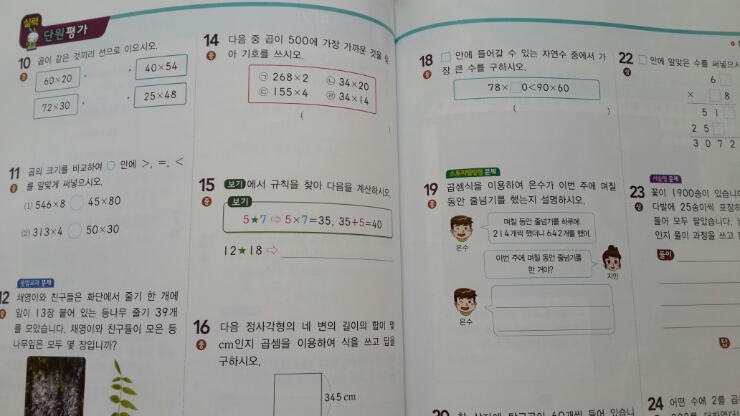 실력
단원평가
10 곱이 같은 것끼리 선으로 이으시오.
중
60×20
40×54
72×30
25×48
11 곱의 크기를 비교하여 ○ 안에 >, =, <
중 를 알맞게 써넣으시오.
(1) 546×8 ○ 45×80
(2) 313×4 ○ 50×30
융합교과 문제
12 채영이와 친구들은 화단에서 줄기 한 개에
잎이 13장 붙어 있는 등나무 줄기 39개
를 모았습니다. 채영이와 친구들이 모은 등
나무잎은 모두 몇 장입니까?
14 다음 중 곱이 500에 가장 가까운 것을
중 아 기호를 쓰시오.
㉠ 268×2 ㉡ 34×20
㉢ 155×4 ㉣ 34×14
(
15 보기 에서 규칙을 찾아 다음을 계산하시오.
중
보기
5★7 ⇨ 5×7=35, 35+5=40
12★18 ⇨
16 다음 정사각형의 네 변의 길이의 합이 몇
중 cm인지 곱셈을 이용하여 식을 쓰고 답을
구하시오.
345 cm
18 □ 안에 들어갈 수 있는 자연수 중에서 가
중 장 큰 수를 구하시오.
78×□0<90×60
( )
스토리텔링형 문제
19 곱셈식을 이용하여 은수가 이번 주에 며칠
중 동안 줄넘기를 했는지 설명하시오.
며칠 동안 줄넘기를 하루에
214개씩 했더니 642개를 했어.
은수
이번 주에 며칠 동안 줄넘기를
한 거야?
지민
은수
20
22 □ 안에 알맞은 수를 써넣으시
상
6□
× □8
51□
25□
3072
서술형 문제
23 꽃이 1900송이 있습니다
상 다발에 25송이씩 포장하
들어 모두 팔았습니다.
인지 풀이 과정을 쓰고
풀이
답
24 어떤 수에 2를 곱